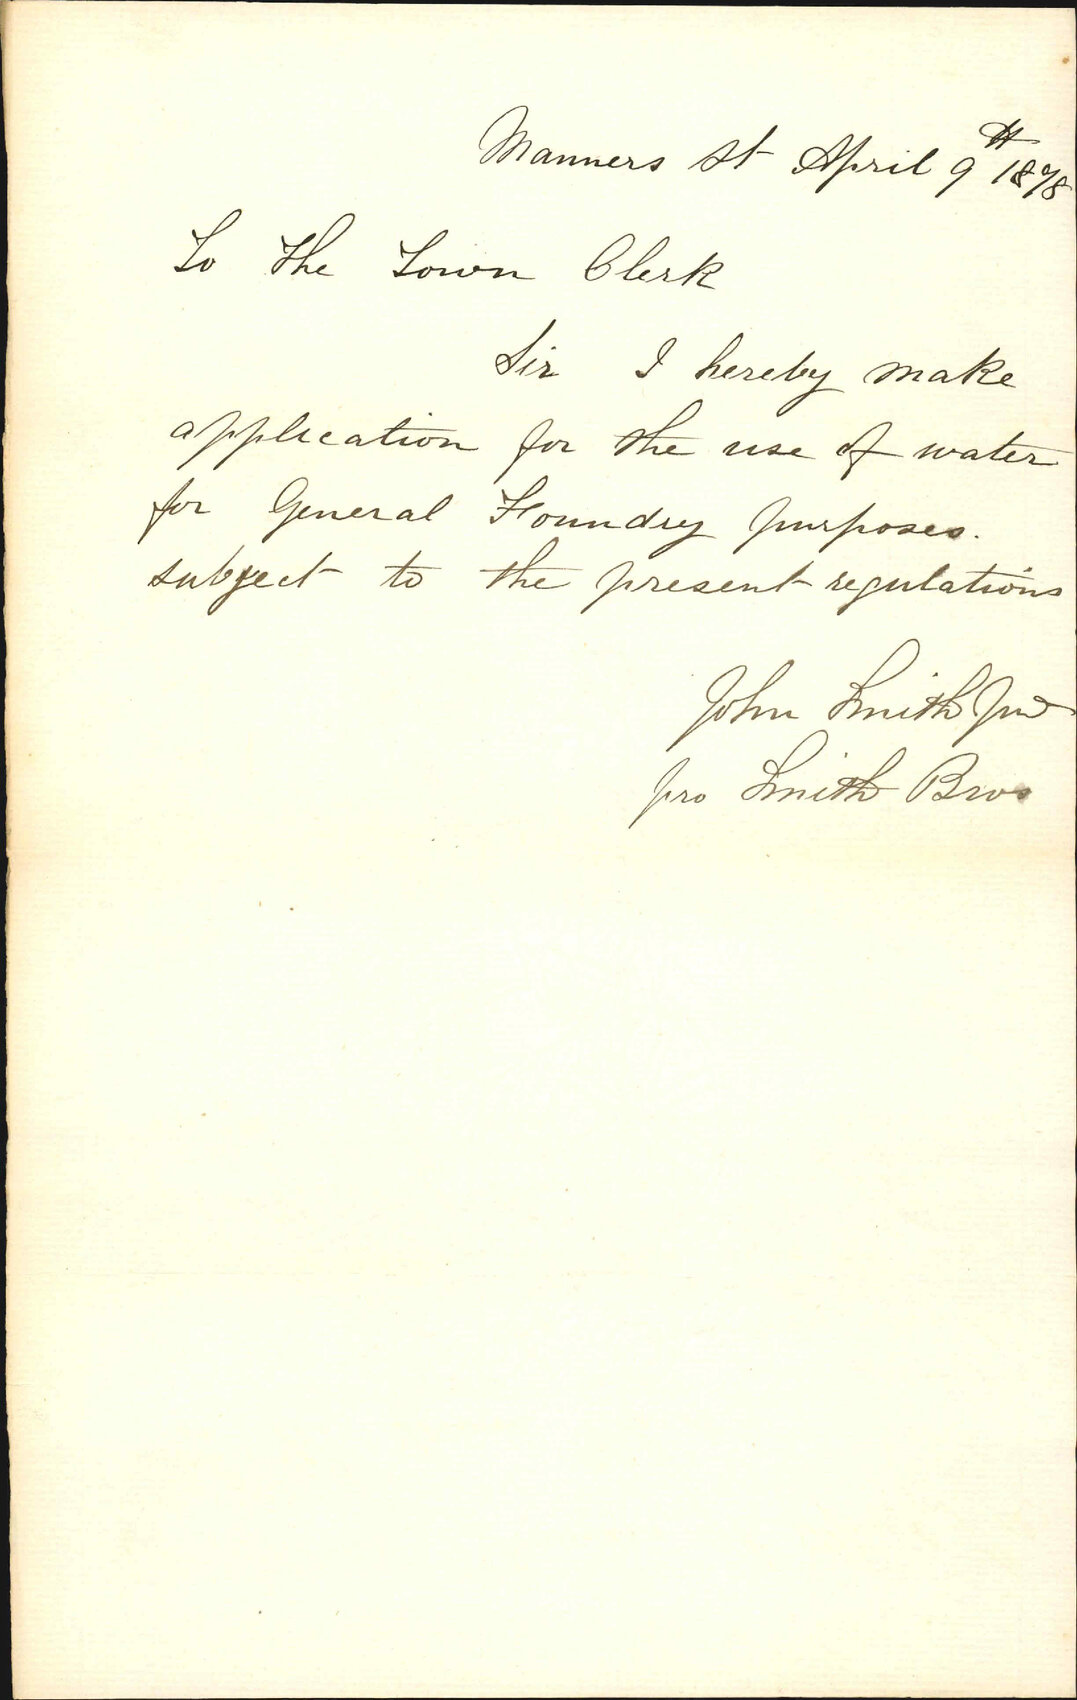 Manners St April 9th 1878
To The Town Clerk
Sir I hereby make
application for the use of water
for General Foundry purposes.
subject to the present regulations
John Smith Jnr
pro Smith Bros